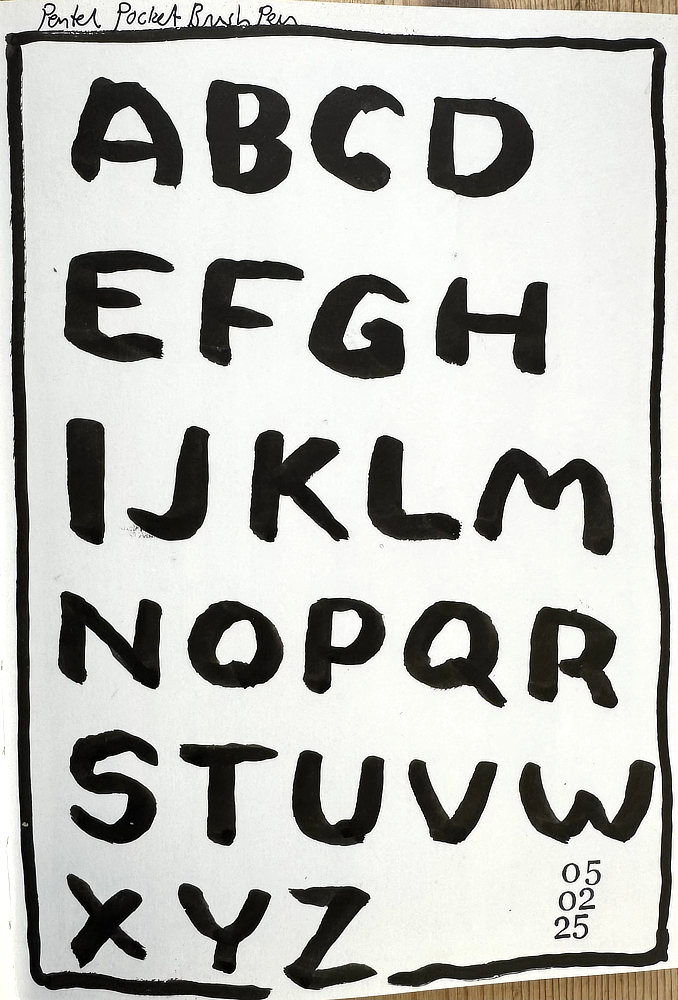 Pentel Pocket Brush Pen
ABCD
EFGH
IJKLM
NOPQR
STUVW
XYZ
05
02
25